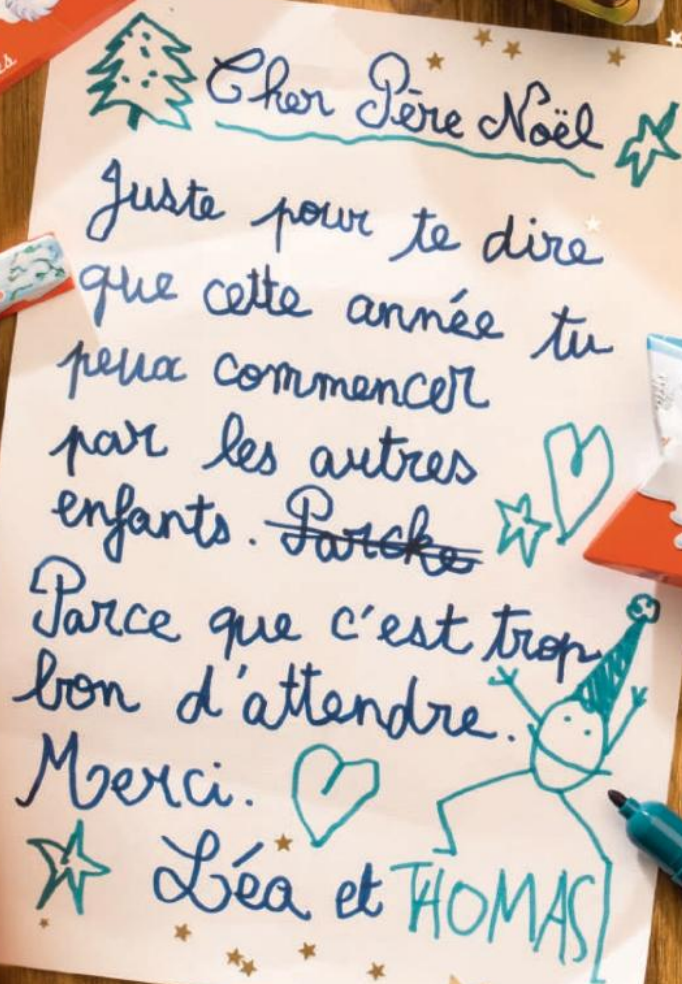 Cher Père Noël
Juste pour te dire
que cette année tu
peux commencer
par les autres
enfants. Parcke
Parce que c'est trop
bon d'attendre.
Merci.
Léa et THOMAS